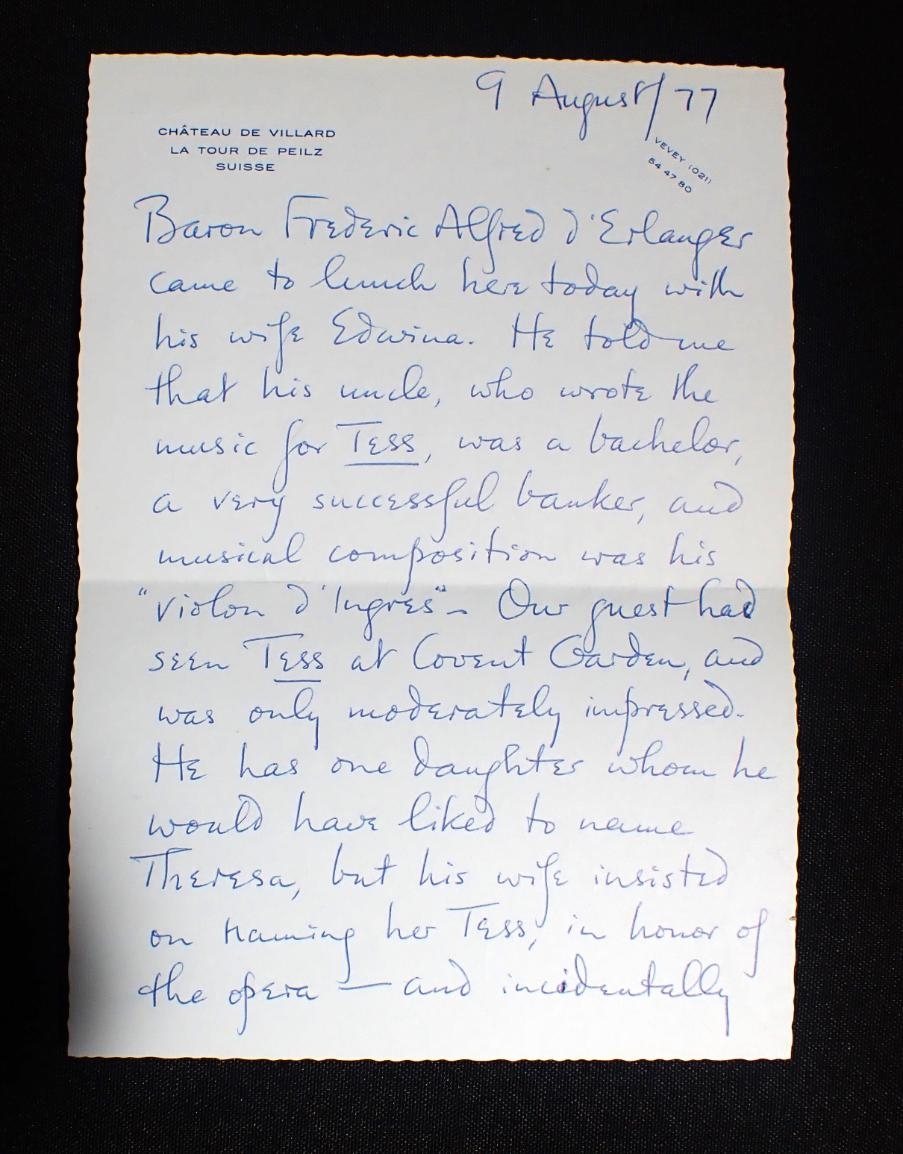 9 August/77
CHÂTEAU DE VILLARD
LA TOUR DE PEILZ
SUISSE
VEVEY (021)
54 47 80
Baron Frederic Alfred d'Erlanger
came to lunch here today with
his wife Edwina. He told me
that his uncle, who wrote the
music for Tess, was a bachelor,
a very successful banker, and
musical composition was his
"violon d'Ingres"– Our guest had
seen Tess at Covent Garden, and
was only moderately impressed.
He has one daughter whom he
would have liked to name
Theresa, but his wife insisted
on naming her Tess, in honor of
the opera — and incidentally